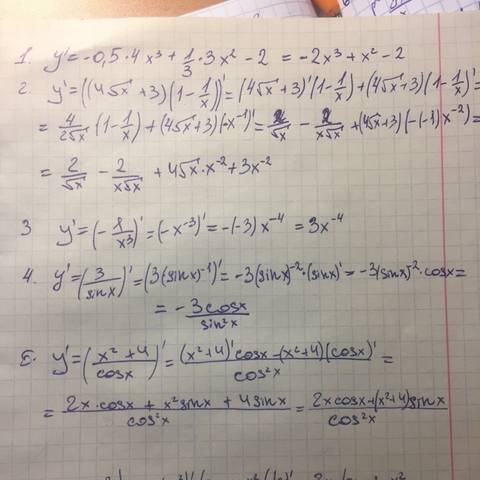 1. y'=-0,5·4x³+1/3·3x²-2 = -2x³+x²-2
2. y'=((4√x+3)(1-1/x))'=(4√x+3)'(1-1/x)+(4√x+3)(1-1/x)'=
= 4/2√x (1-1/x)+(4√x+3)(-x⁻¹)'= 2/√x - 2/x√x +(4√x+3)(-(-1)x⁻²)=
= 2/√x - 2/x√x + 4√x·x⁻²+3x⁻²
3 y'=(-1/x³)'=(-x⁻³)'=-(-3)x⁻⁴ = 3x⁻⁴
4. y'=(3/sinx)'=(3(sinx)⁻¹)'=-3(sinx)⁻²·(sinx)'=-3(sinx)⁻²·cosx=
= -3cosx/sin²x
5. y'=(x²+4/cosx)'=(x²+4)'cosx-(x²+4)(cosx)'/cos²x =
= 2x·cosx+x²sinx+4sinx/cos²x = 2xcosx+(x²+4)sinx/cos²x